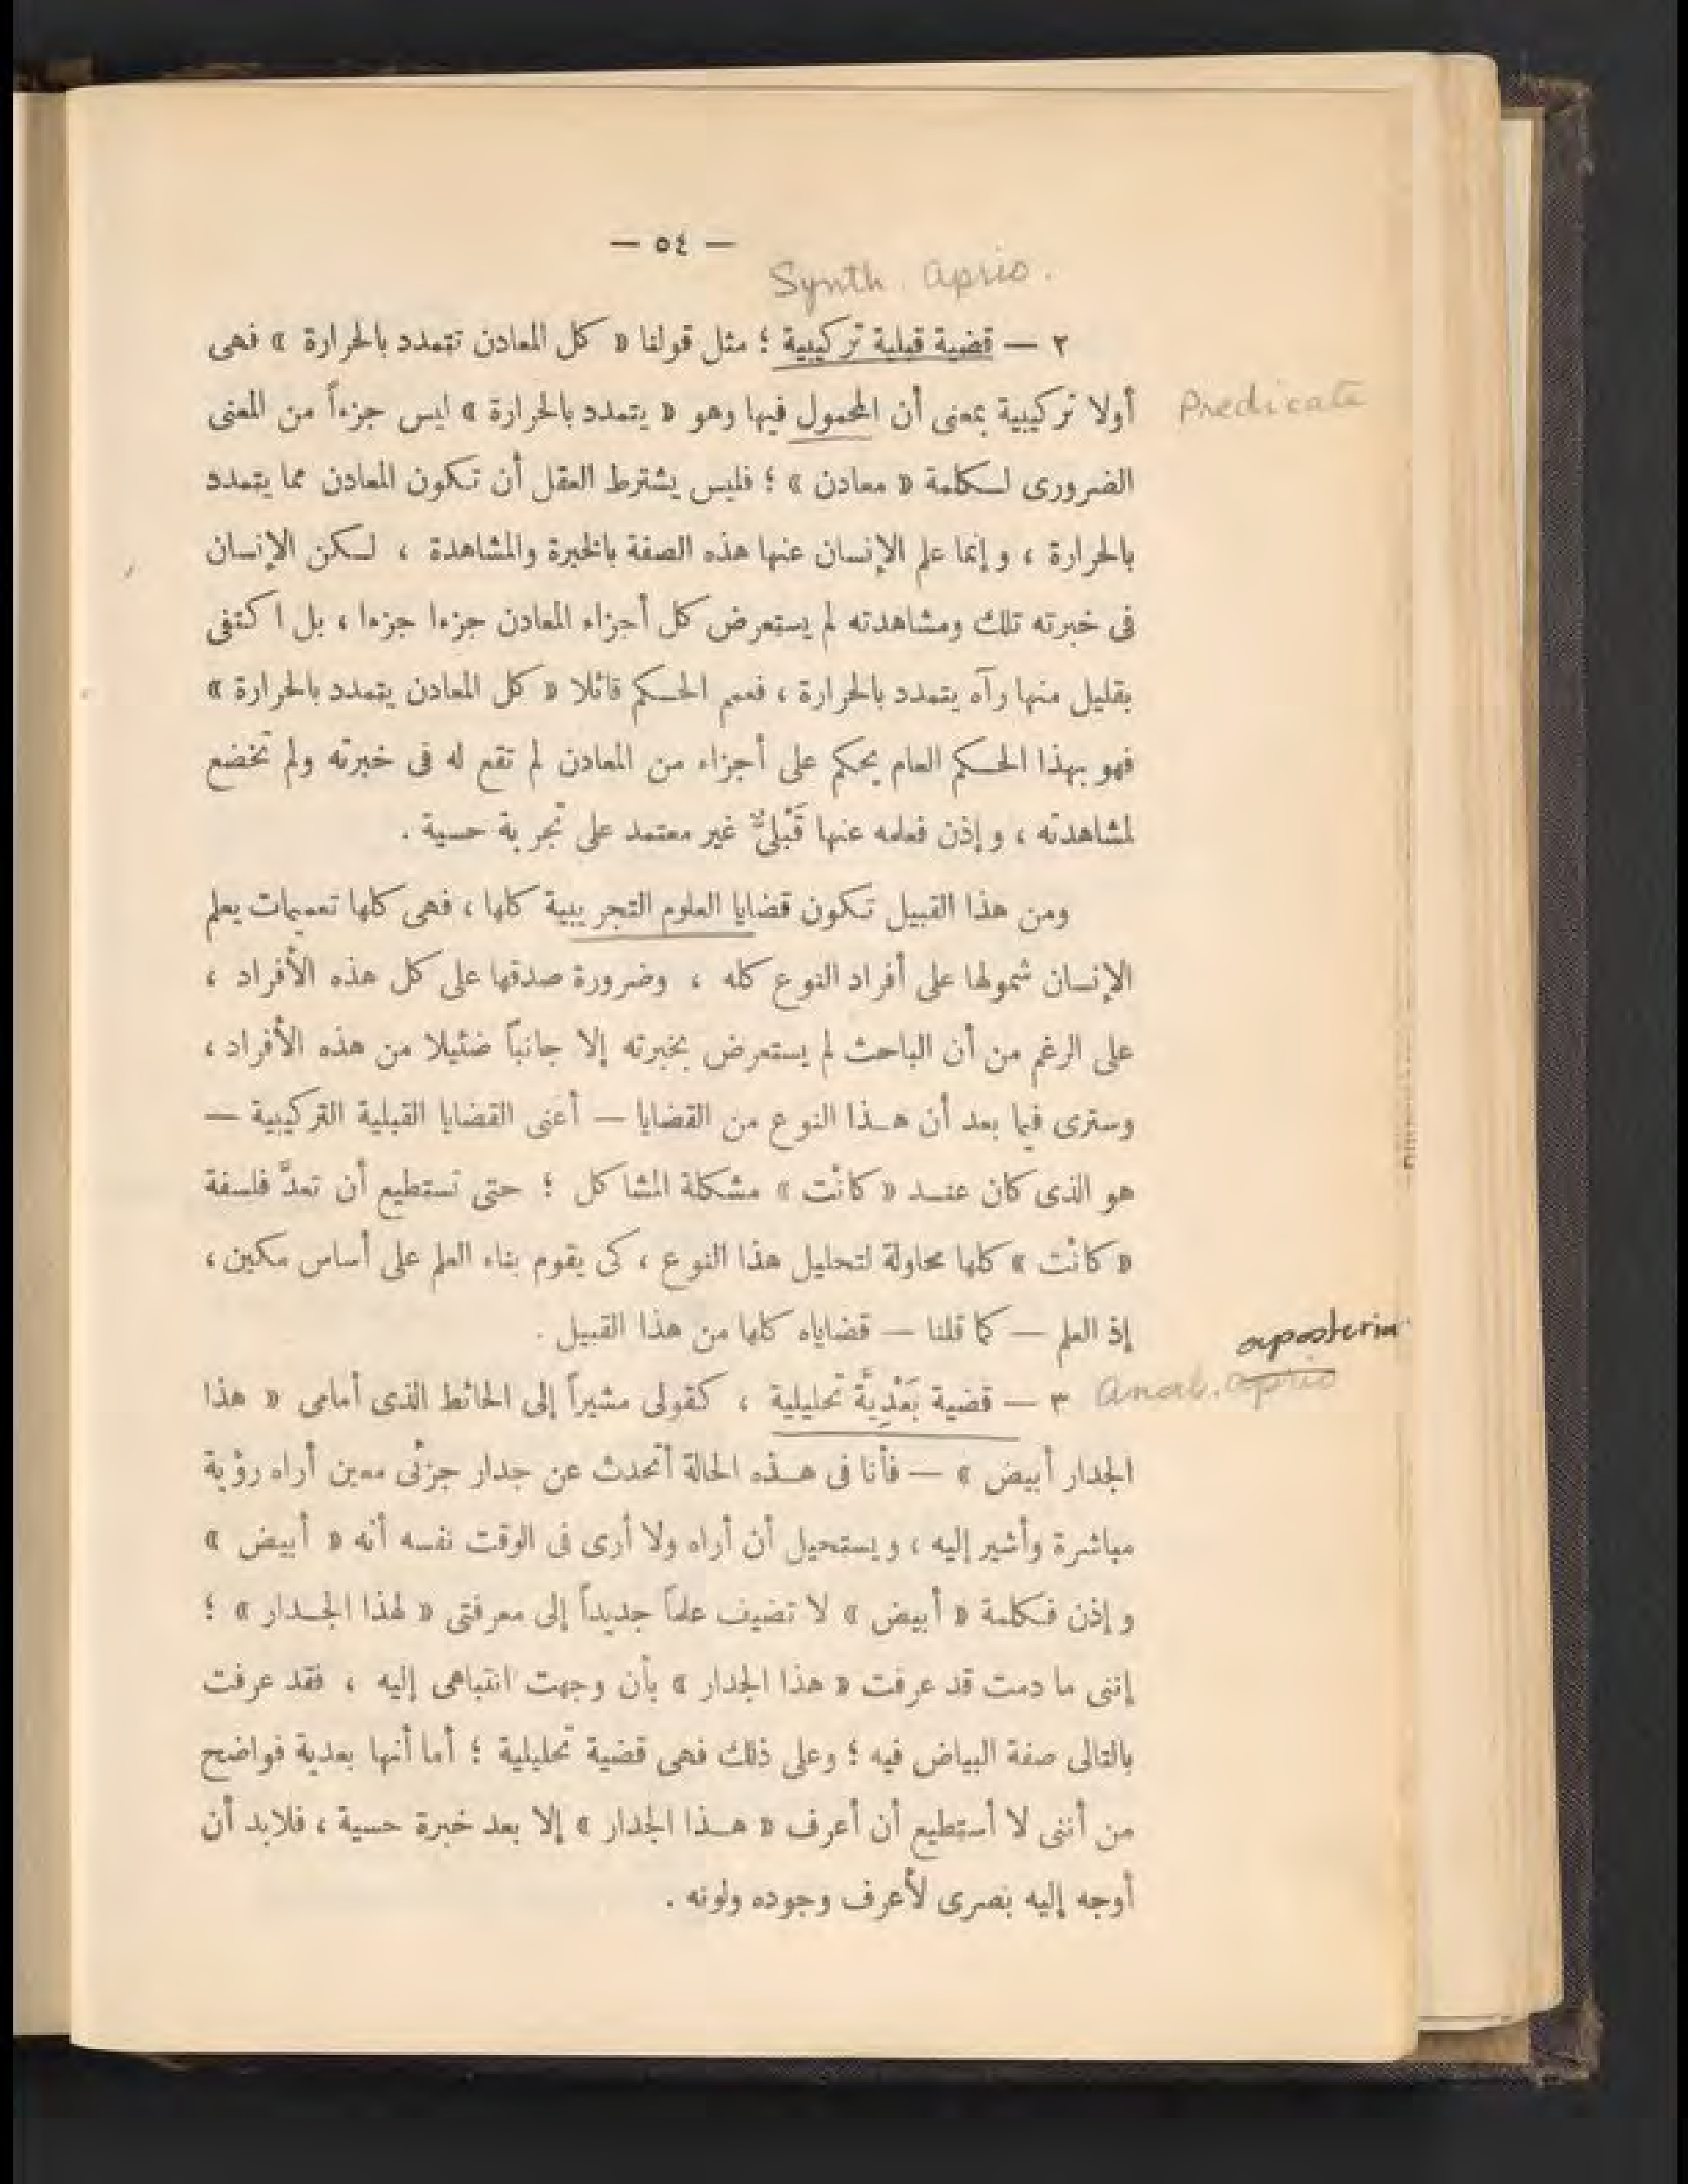 — ٥٤ —
Synth. aprio.
٢ — قضية قبلية تركيبية ؛ مثل قولنا « كل المعادن تتمدد بالحرارة » فهى
أولا تركيبية بمعنى أن المحمول فيها وهو « يتمدد بالحرارة » ليس جزءاً من المعنى
Predicate
الضرورى لكلمة « معادن » ؛ فليس يشترط العقل أن تكون المعادن مما يتمدد
بالحرارة ، وإنما علم الإنسان عنها هذه الصفة بالخبرة والمشاهدة ، لكن الإنسان
فى خبرته تلك ومشاهدته لم يستعرض كل أجزاء المعادن جزءا جزءا ، بل اكتفى
بقليل منها رآه يتمدد بالحرارة ، فعمم الحكم قائلا « كل المعادن يتمدد بالحرارة »
فهو بهذا الحكم العام يحكم على أجزاء من المعادن لم تقع له فى خبرته ولم تخضع
لمشاهدته ، وإذن فعلمه عنها قَبْلىٌّ غير معتمد على تجربة حسية .
ومن هذا القبيل تكون قضايا العلوم التجريبية كلها ، فهى كلها تعميمات يعلم
الإنسان شمولها على أفراد النوع كله ، وضرورة صدقها على كل هذه الأفراد ،
على الرغم من أن الباحث لم يستعرض بخبرته إلا جانباً ضئيلا من هذه الأفراد ،
وسترى فيما بعد أن هذا النوع من القضايا — أعنى القضايا القبلية التركيبية —
هو الذى كان عند « كانْت » مشكلة المشاكل ؛ حتى تستطيع أن تعدَّ فلسفة
« كانْت » كلها محاولة لتحليل هذا النوع ، كى يقوم بناء العلم على أساس مكين ،
إذ العلم — كما قلنا — قضاياه كلها من هذا القبيل .
aposteria
٣ — قضية بَعْدِيَّة تحليلية ، كقولى مشيراً إلى الحائط الذى أمامى « هذا
Anal. aprio
الجدار أبيض » — فأنا فى هذه الحالة أتحدث عن جدار جزئى معين أراه رؤية
مباشرة وأشير إليه ، ويستحيل أن أراه ولا أرى فى الوقت نفسه أنه « أبيض »
وإذن فكلمة « أبيض » لا تضيف علماً جديداً إلى معرفتى « لهذا الجدار » ؛
إننى ما دمت قد عرفت « هذا الجدار » بأن وجهت انتباهى إليه ، فقد عرفت
بالتالى صفة البياض فيه ؛ وعلى ذلك فهى قضية تحليلية ؛ أما أنها بعدية فواضح
من أننى لا أستطيع أن أعرف « هذا الجدار » إلا بعد خبرة حسية ، فلابد أن
أوجه إليه بصرى لأعرف وجوده ولونه .